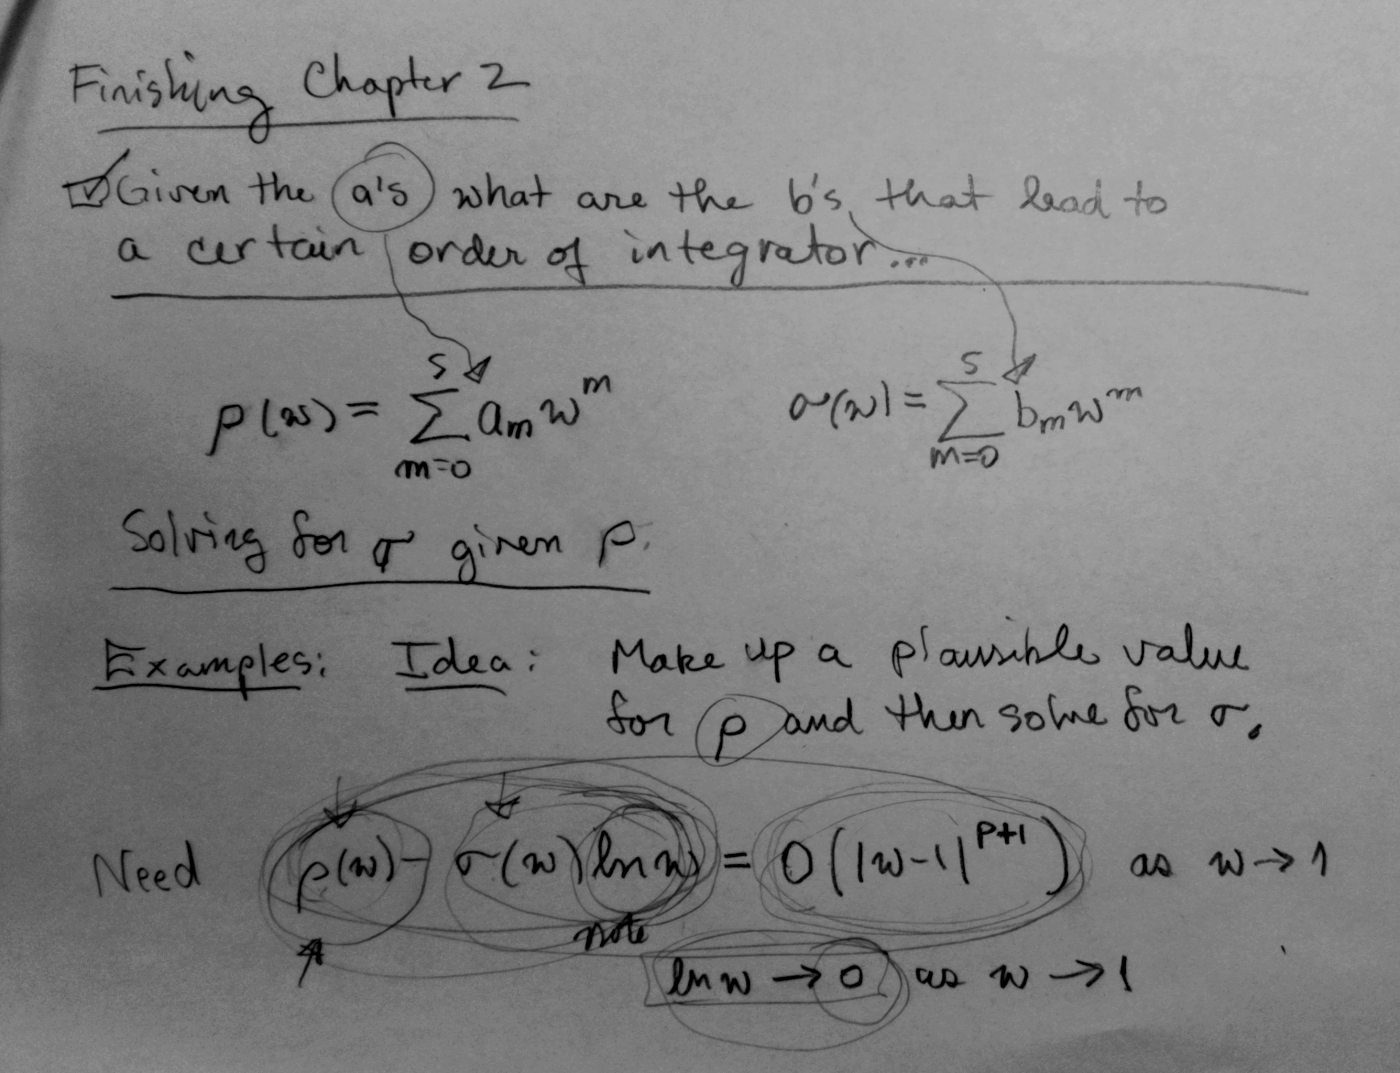 Finishing Chapter 2
Given the a's what are the b's that lead to
a certain order of integrator...
ρ(w) = ∑_{m=0}^{s} a_m w^m    σ(w) = ∑_{m=0}^{s} b_m w^m
Solving for σ given ρ.
Examples: Idea: Make up a plausible value
for ρ and then solve for σ.
Need ρ(w) - σ(w) ln w = O(|w-1|^{p+1}) as w → 1
note
ln w → 0 as w → 1